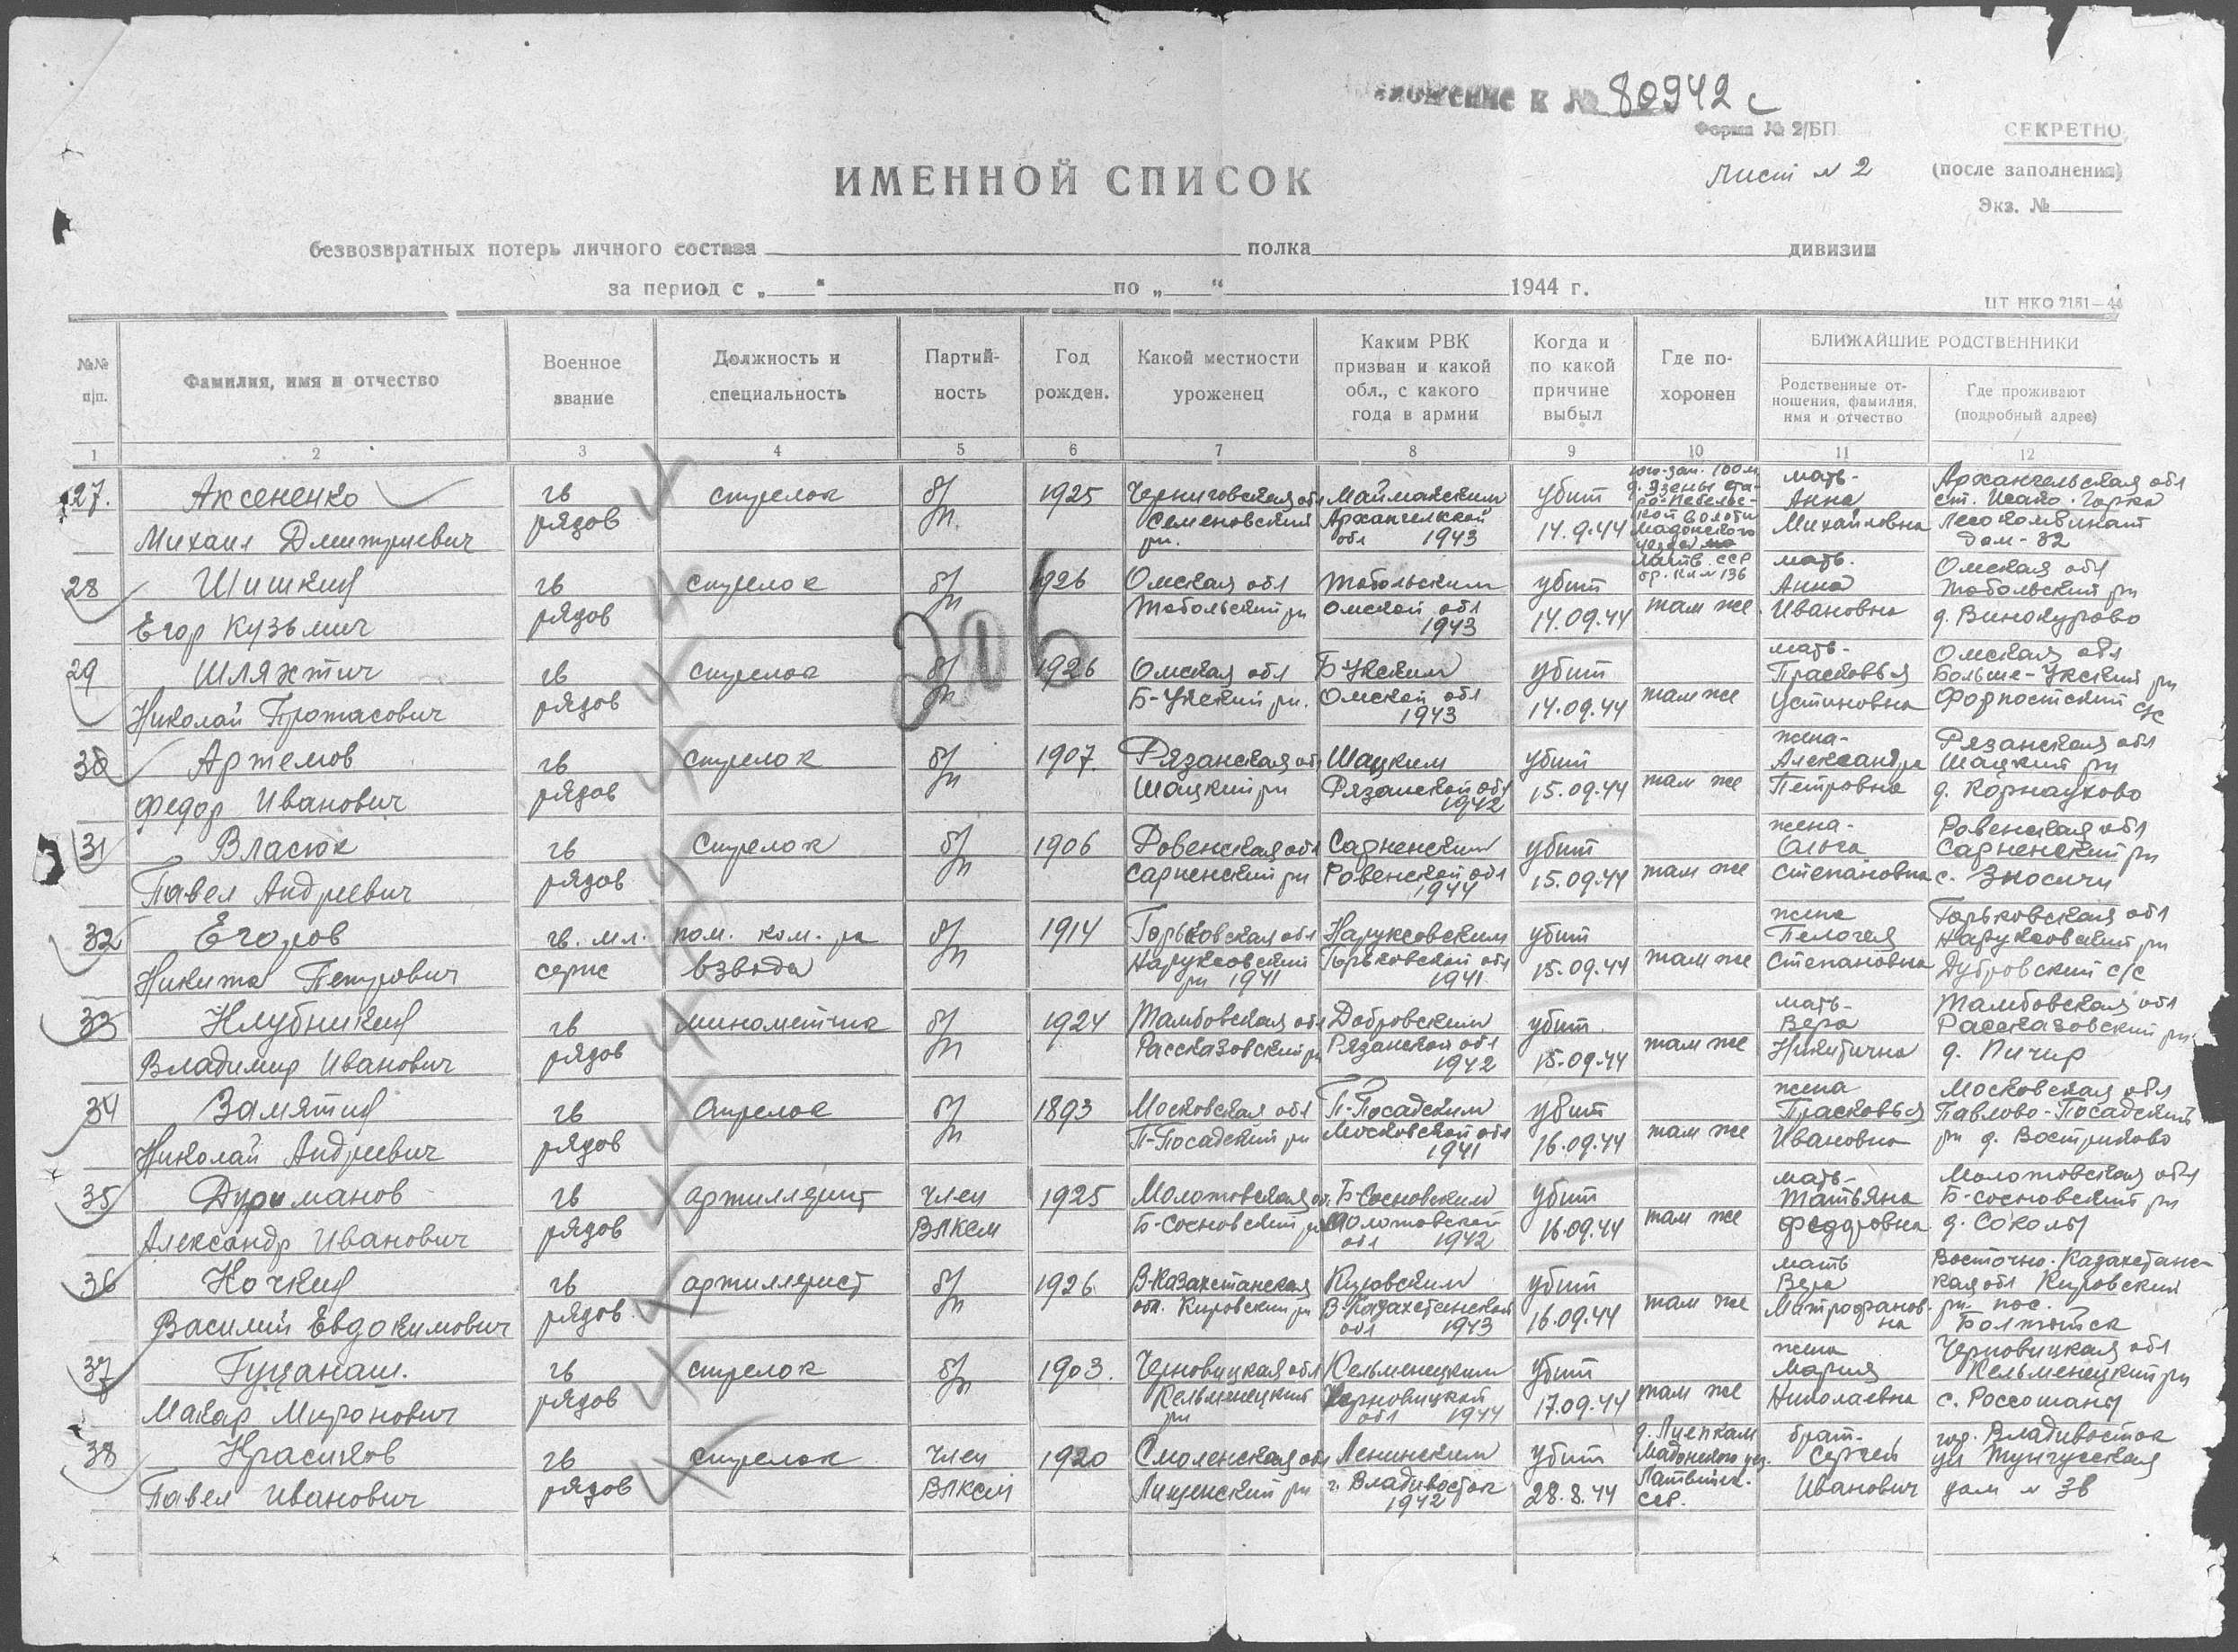 к № 80942 с
Форма № 2/БП
СЕКРЕТНО
Лист № 2
(после заполнения)
Экз. №
ИМЕННОЙ СПИСОК
безвозвратных потерь личного состава полка дивизии
за период с „ “ по „ “ 1944 г.
ЦТ НКО 2181—44
№№ п/п.
Фамилия, имя и отчество
Военное звание
Должность и специальность
Партий-ность
Год рожден.
Какой местности уроженец
Каким РВК призван и какой обл., с какого года в армии
Когда и по какой причине выбыл
Где по-хоронен
БЛИЖАЙШИЕ РОДСТВЕННИКИ
Родственные от-ношения, фамилия, имя и отчество
Где проживают (подробный адрес)
1 2 3 4 5 6 7 8 9 10 11 12
206
27. Аксененко гв стрелок б/п. 1925 Черниговская обл Маймакским убит юго-зап. 100 м мать- Архангельская обл
Михаил Дмитриевич рядов Семеновский рн. Архангелкской обл 1943 14.9.44 Мадонского Латв. ССР Анна Михайловна Лесокомбинат дом-32
28 Шишкин гв стрелок б/п 1926 Омская обл Тобольским убит мать. Омская обл
Егор Кузьмич рядов Тобольский рн Омской обл 1943 14.09.44 там же Анна Ивановна Тобольский рн д. Винокурово
29 Шляхтич гв стрелок б/п 1926 Омская обл Б-Укским убит мать- Омская обл
Николай Протасович рядов Б-Укский рн. Омской обл 1943 14.09.44 там же Прасковья Устиновна Больше-Укский рн Форпостский с/с
30 Артемов гв стрелок б/п 1907. Рязанская обл Шацким убит жена- Рязанская обл
Федор Иванович рядов Шацкий рн Рязанской обл 1942 15.09.44 там же Александра Петровна Шацкий рн д. Корнауково
31 Власюк гв стрелок б/п 1906 Ровенская обл Сарненским убит жена- Ровенская обл
Павел Андреевич рядов Сарненский рн Ровенской обл 1944 15.09.44 там же Ольга Степановна Сарненский рн с. Зносичи
32 Егоров гв. мл. пом. ком. ра б/п 1914 Горьковская обл Наруксовским убит жена Горьковская обл
Никита Петрович серж взвода Наруксовский рн 1941 Горьковской обл 1941 15.09.44 там же Пелогея Степановна Наруксовский рн Дубровский с/с
33 Клубникин гв минометчик б/п 1924 Тамбовская обл Добровским убит. мать- Тамбовская обл
Владимир Иванович рядов Рассказовский рн Рязанской обл 1942 15.09.44 там же Вера Никитична Рассказовский рн. д. Пичир
34 Замятин гв стрелок б/п 1893 Московская обл П-Посадским убит жена Московская обл
Николай Андреевич рядов П-Посадский рн Московской обл 1941 16.09.44 там же Прасковья Ивановна Павлово-Посадский рн д. Востриково
35 Дурманов гв артиллерист член 1925 Молотовская об. Б-Сосновским убит мать- Молотовская обл
Александр Иванович рядов ВЛКСМ Б-Сосновский рн Молотовской обл 1942 16.09.44 там же Татьяна Федоровна Б-сосновский рн д. Соколы
36 Кочкин гв артиллерист б/п 1926 В-Казахстанская Кировским убит мать Восточно-Казахстанс-
Василий Евдокимович рядов. обл. Кировский рн В-Казахстанской обл 1943 16.09.44 там же Вера Митрофанов-на кая обл Кировский рн. пос.
37 Гуцанаш. гв стрелок б/п 1903. Черновицкая обл Кельменецким убит жена Черновицкая обл
Макар Миронович рядов Кельменецкий рн Черновицкой обл 1944 17.09.44 там же Мария Николаевна Кельменецкий рн с. Россошаны
38 Красиков гв стрелок член 1920 Смоленская обл Ленинским убит Мадонского уез. брат- гор. Владивосток
Павел Иванович рядов ВЛКСМ рн г. Владивосток 1942 28.8.44 Латвийск. ССР. Сергей Иванович ул Тунгусская дом № 38